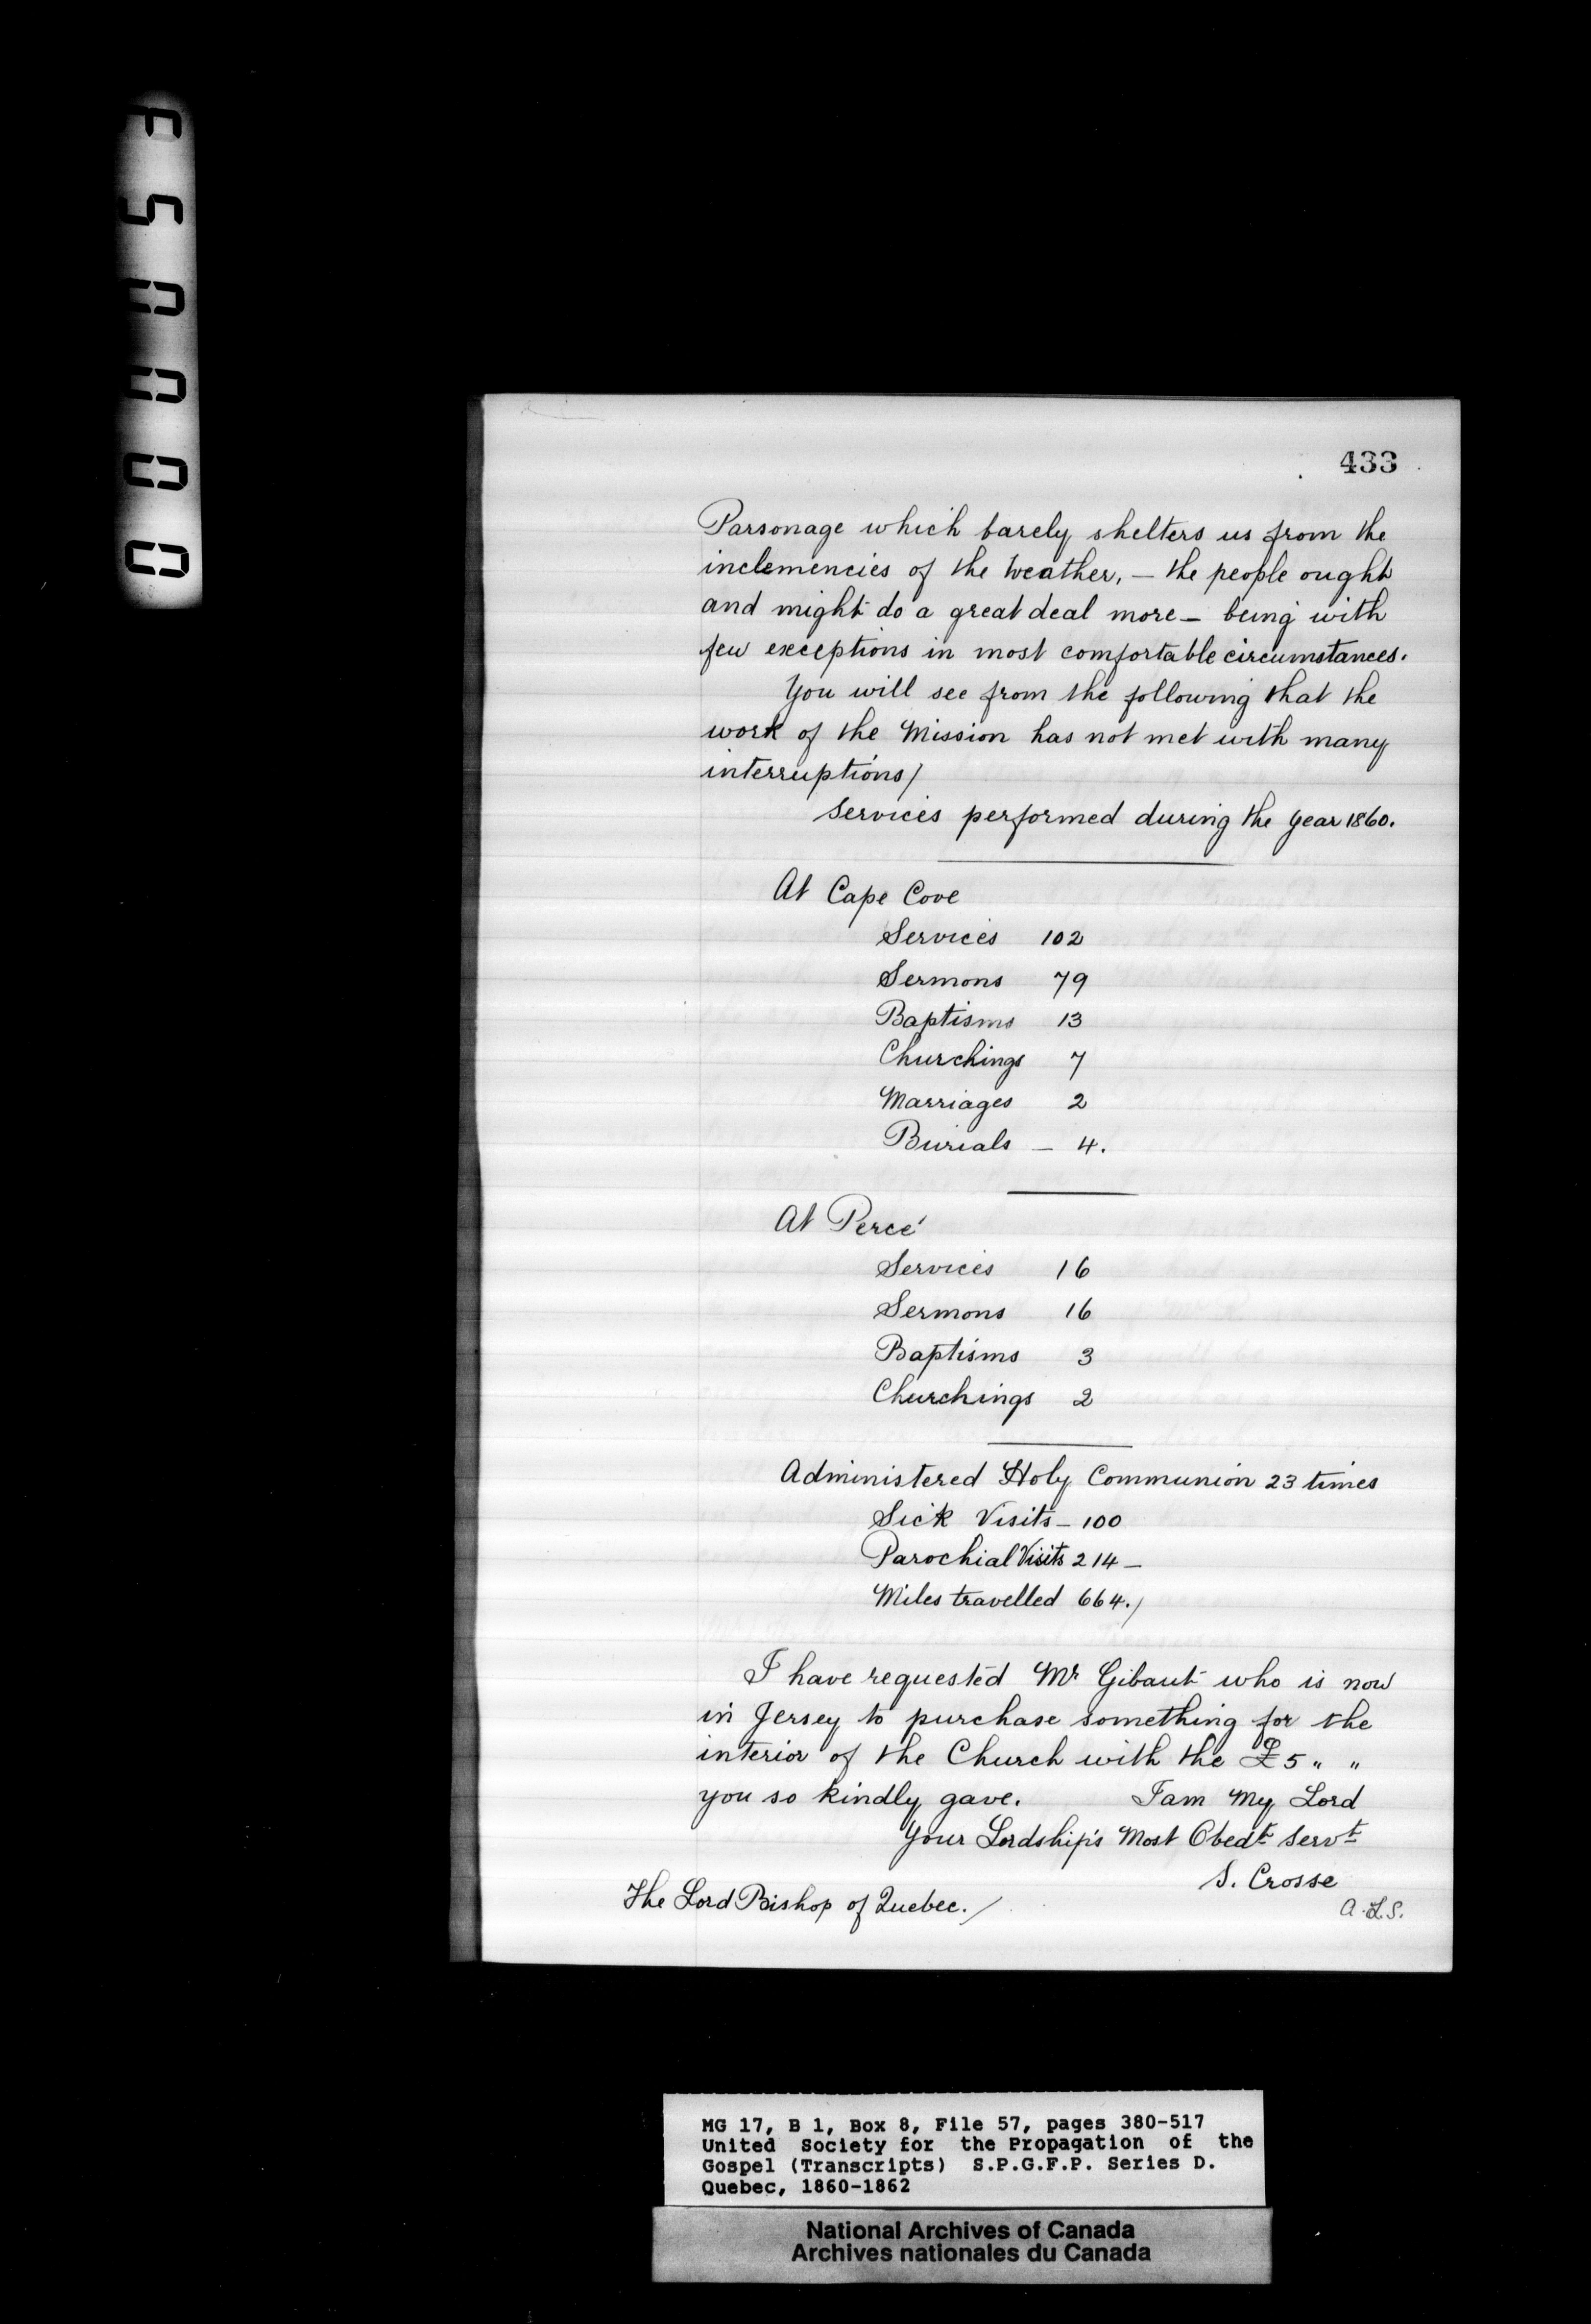 433
Parsonage which barely shelters us from the
inclemencies of the Weather, — the people ought
and might do a great deal more — being with
few exceptions in most comfortable circumstances.
You will see from the following that the
work of the Mission has not met with many
interruptions/
Services performed during the Year 1860.
At Cape Cove
Services 102
Sermons 79
Baptisms 13
Churchings 7
Marriages 2
Burials — 4.
At Percé
Services 16
Sermons 16
Baptisms 3
Churchings 2
Administered Holy Communion 23 times
Sick Visits — 100
Parochial Visits 214 —
Miles travelled 664./
I have requested Mr Gibaut who is now
in Jersey to purchase something for the
interior of the Church with the £5 " "
you so kindly gave. I am My Lord
Your Lordship's Most Obedt Servt
S. Crosse
The Lord Bishop of Quebec./
A.L.S.
MG 17, B 1, Box 8, File 57, pages 380-517
United Society for the Propagation of the
Gospel (Transcripts) S.P.G.F.P. Series D.
Quebec, 1860-1862
National Archives of Canada
Archives nationales du Canada